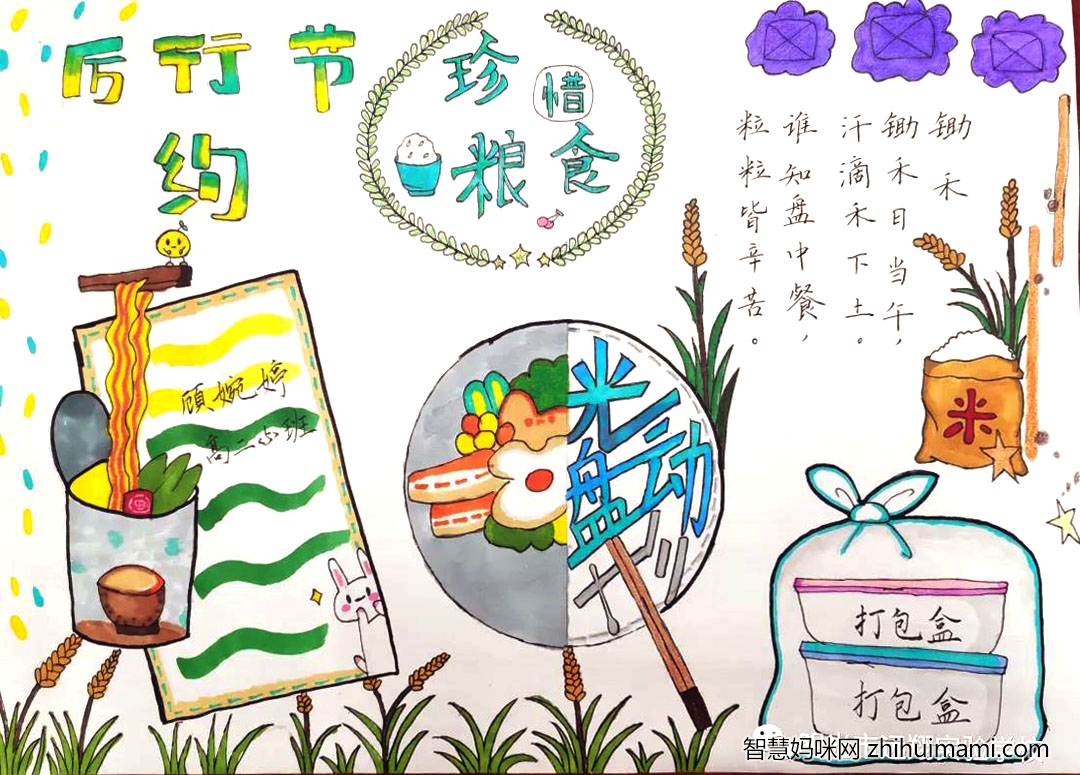 厉行节
约
珍惜
粮食
锄禾
锄禾日当午，
汗滴禾下土。
谁知盘中餐，
粒粒皆辛苦。
顾婉婷
高二小班
光盘
动
米
打包盒
打包盒
智慧妈咪网 zhihuimami.com